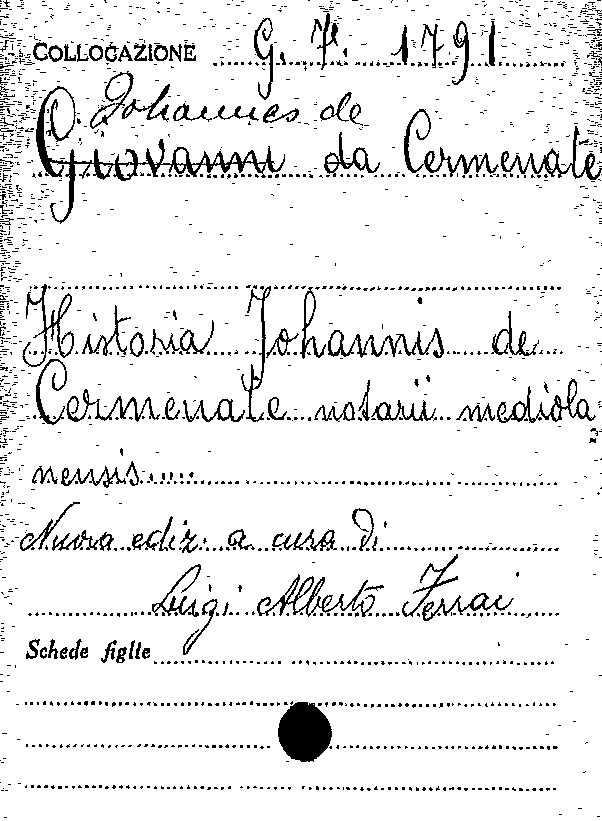 COLLOCAZIONE G. 7. 1791
Johannes de
Giovanni da Cermenate
Historia Johannis de
Cermenate notarii mediola
nensis.....
Nuova ediz. a cura di
Luigi Alberto Ferrai
Schede figlie